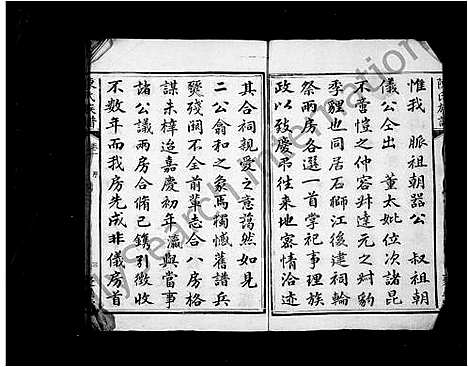 惟我 脈祖朝器公 叔祖朝
儀公仝出 董太妣位次諸昆
不啻愷之仲容舛達元之舛豹
季貍也同居石獅江後建祠輪
祭兩房各選一首掌祀事理族
政以致慶弔往來地密情洽迹
其合祠親愛之意藹然如見
二公翕和之象焉獨憾舊譜兵
燹殘闕不全前輩志合八房格
謀未檡迨嘉慶初年 瀛與當事
諸公議兩房合脩已鐫引徵收
不数年而我房先成非儀房首
陳氏族譜
MySearch International